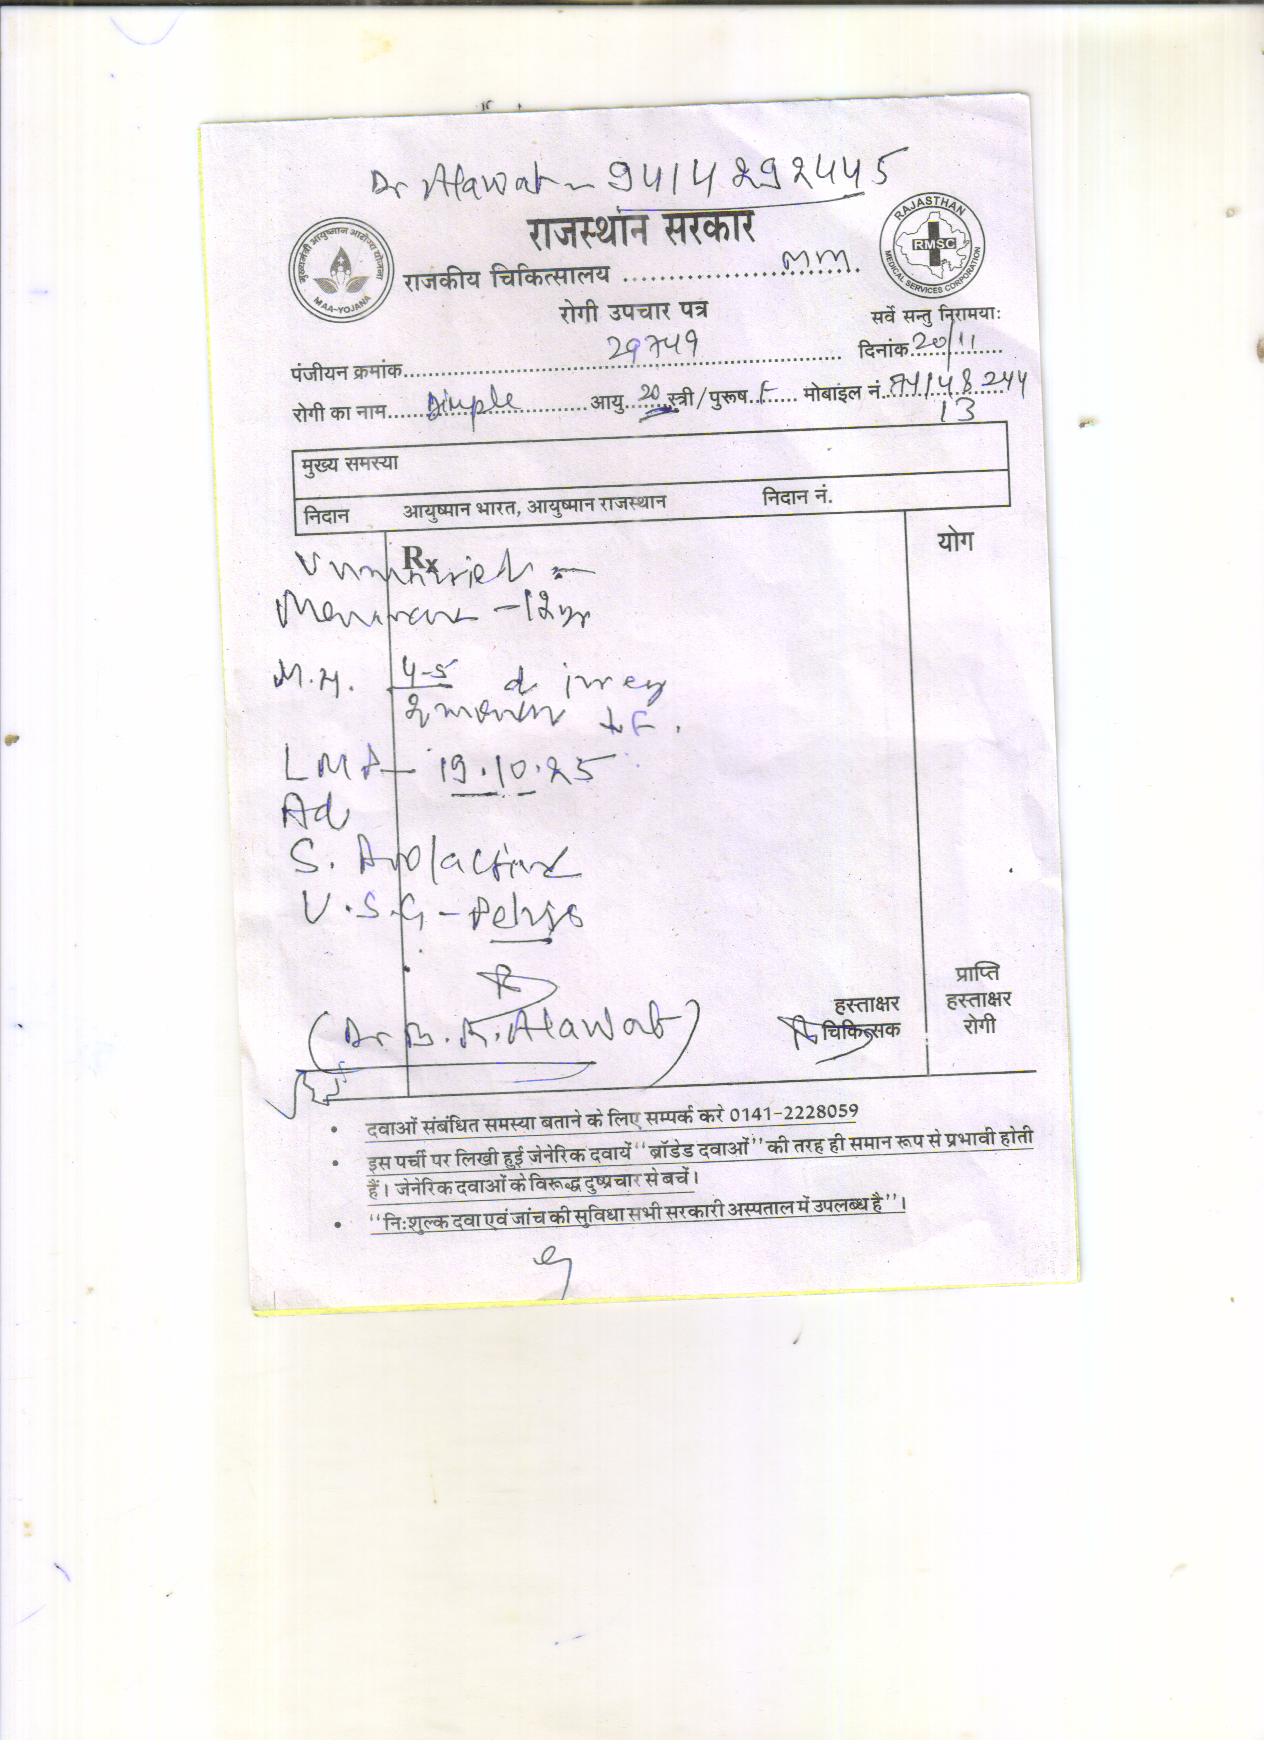 Dr Alawat - 9414292445
राजस्थान सरकार
मुख्यमंत्री आयुष्मान आरोग्य योजना
MAA-YOJANA
RAJASTHAN
RMSC
MEDICAL SERVICES CORPORATION
राजकीय चिकित्सालय .......................... mm
रोगी उपचार पत्र
सर्वे सन्तु निरामयाः
पंजीयन क्रमांक 29749 दिनांक 20/11
रोगी का नाम Dimple आयु 20 स्त्री/पुरूष F मोबाइल नं.
13
मुख्य समस्या
निदान आयुष्मान भारत, आयुष्मान राजस्थान निदान नं.
Rx योग
Unmarried -
- 12 yr
M.H. 4-5 d irreg
2 month
LMP - 19.10.25
Ad
S. Prolactin
U.S.G - Pelvis
(Dr B. R. Alawat)
हस्ताक्षर
चिकित्सक
प्राप्ति
हस्ताक्षर
रोगी
• दवाओं संबंधित समस्या बताने के लिए सम्पर्क करे 0141-2228059
• इस पर्ची पर लिखी हुई जेनेरिक दवायें "ब्रॉडेड दवाओं" की तरह ही समान रूप से प्रभावी होती
हैं। जेनेरिक दवाओं के विरूद्ध दुष्प्रचार से बचें।
• "निःशुल्क दवा एवं जांच की सुविधा सभी सरकारी अस्पताल में उपलब्ध है"।